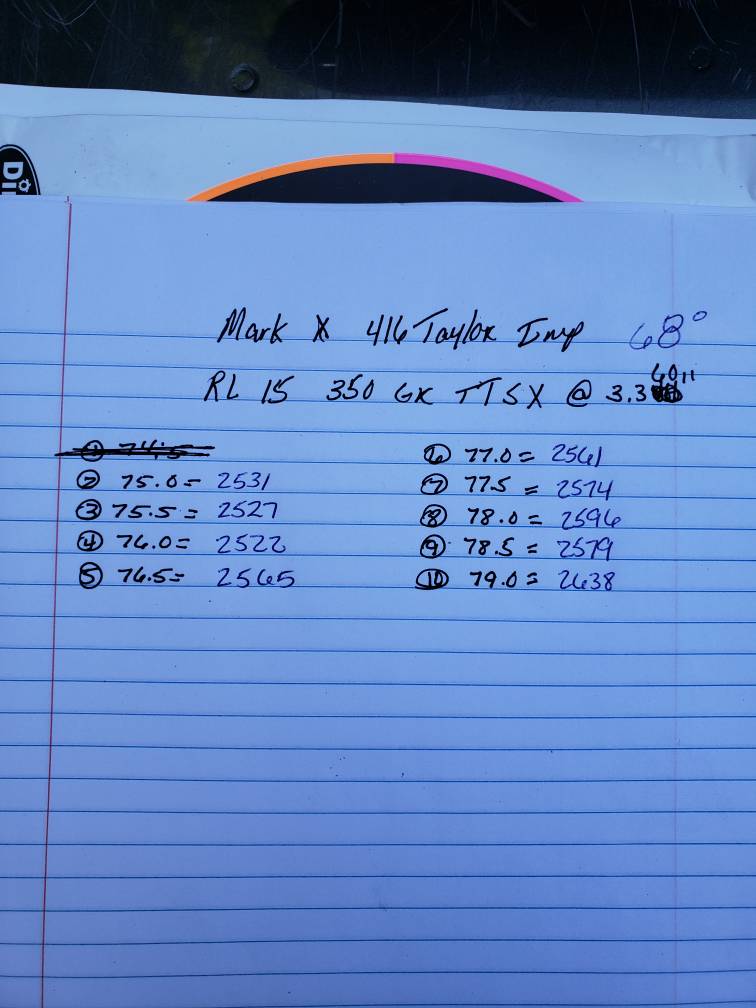 Mark X 416 Taylor Imp 68°
RL 15 350 Gr TTSX @ 3.360"
① 74.5
② 75.0 = 2531
③ 75.5 = 2527
④ 76.0 = 2522
⑤ 76.5 = 2565
⑥ 77.0 = 2561
⑦ 77.5 = 2574
⑧ 78.0 = 2596
⑨ 78.5 = 2579
⑩ 79.0 = 2638